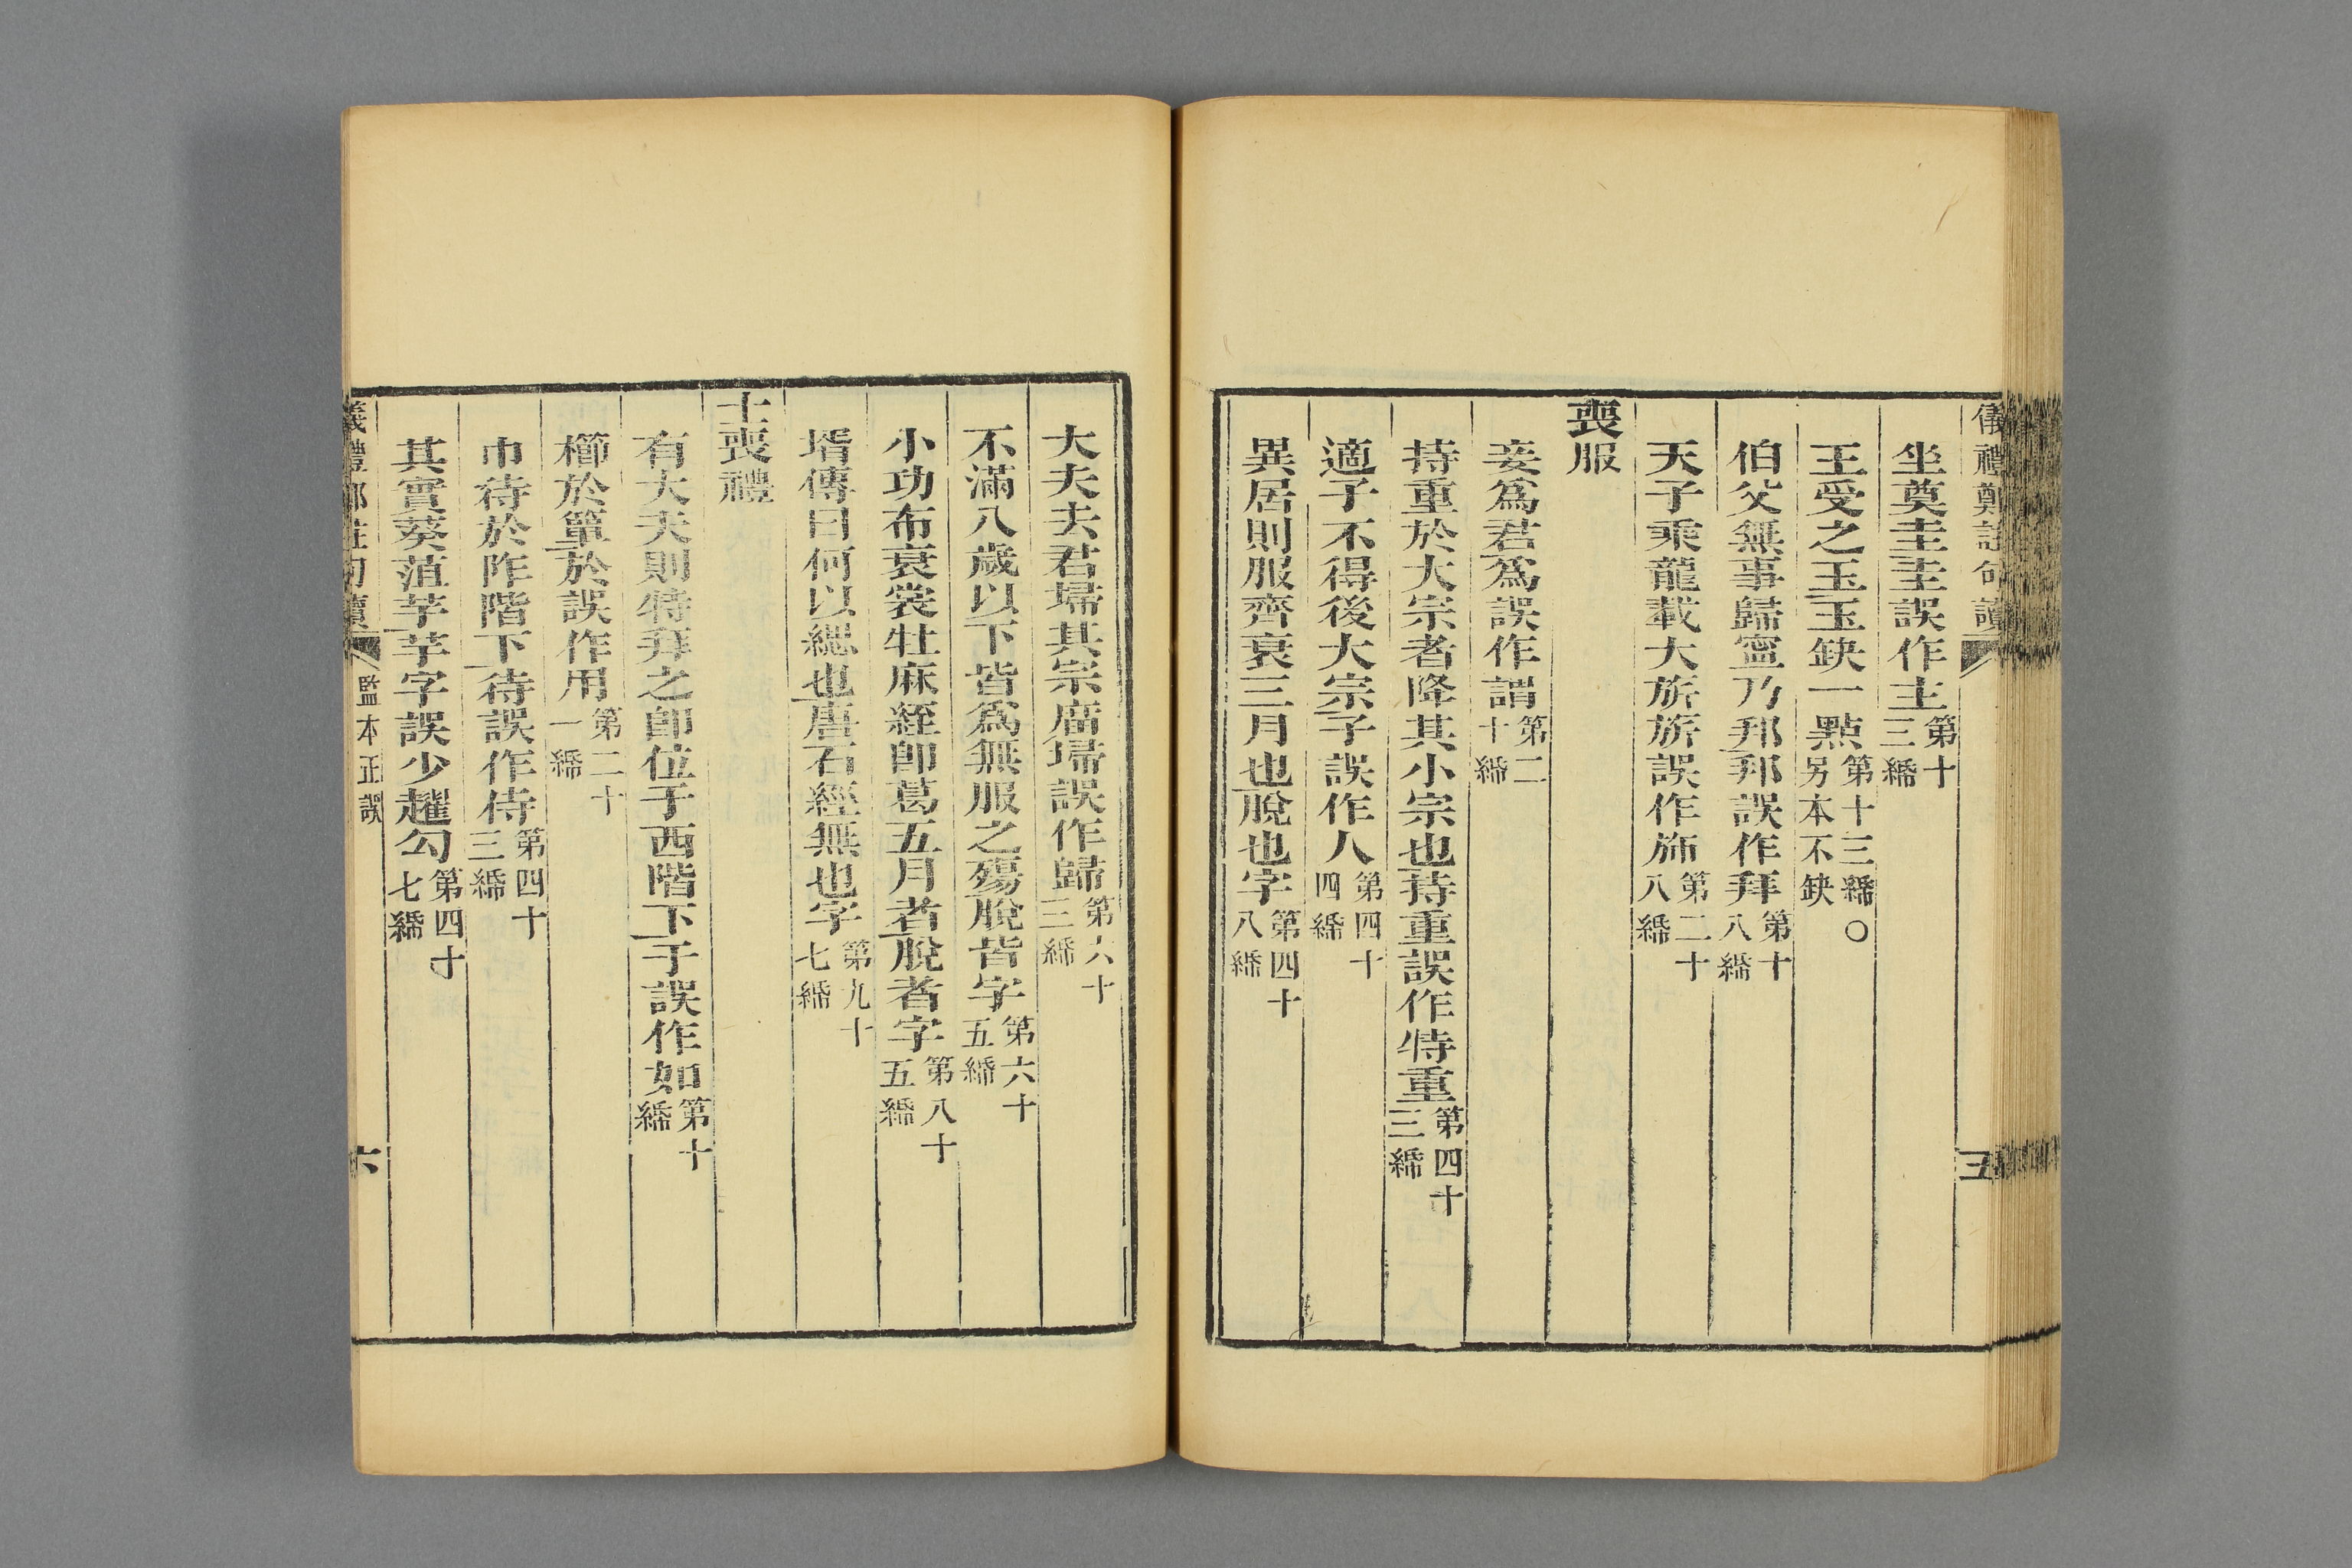 儀禮鄭註句讀 五
坐奠圭圭誤作主第十三緟
王受之玉玉缺一點第十三緟○另本不缺
伯父無事歸寧乃邦邦誤作拜第十八緟
天子乘龍載大旂旂誤作旆第二十八緟
喪服
妾為君為誤作謂第二十緟
持重於大宗者降其小宗也持重誤作特重第四十三緟
適子不得後大宗子誤作人第四十四緟
異居則服齊衰三月也脫也字第四十八緟
大夫去君埽其宗廟埽誤作歸第六十三緟
不滿八歲以下皆為無服之殤脫皆字第六十五緟
小功布衰裳牡麻絰卽葛五月者脫者字第八十五緟
壻傳曰何以緦也唐石經無也字第九十七緟
士喪禮
有大夫則特拜之卽位于西階下于誤作如第十緟
櫛於簞於誤作用第二十一緟
巾待於阼階下待誤作侍第四十三緟
其實葵菹芋芋字誤少趯勾第四十七緟
儀禮鄭註句讀 監本正誤 六